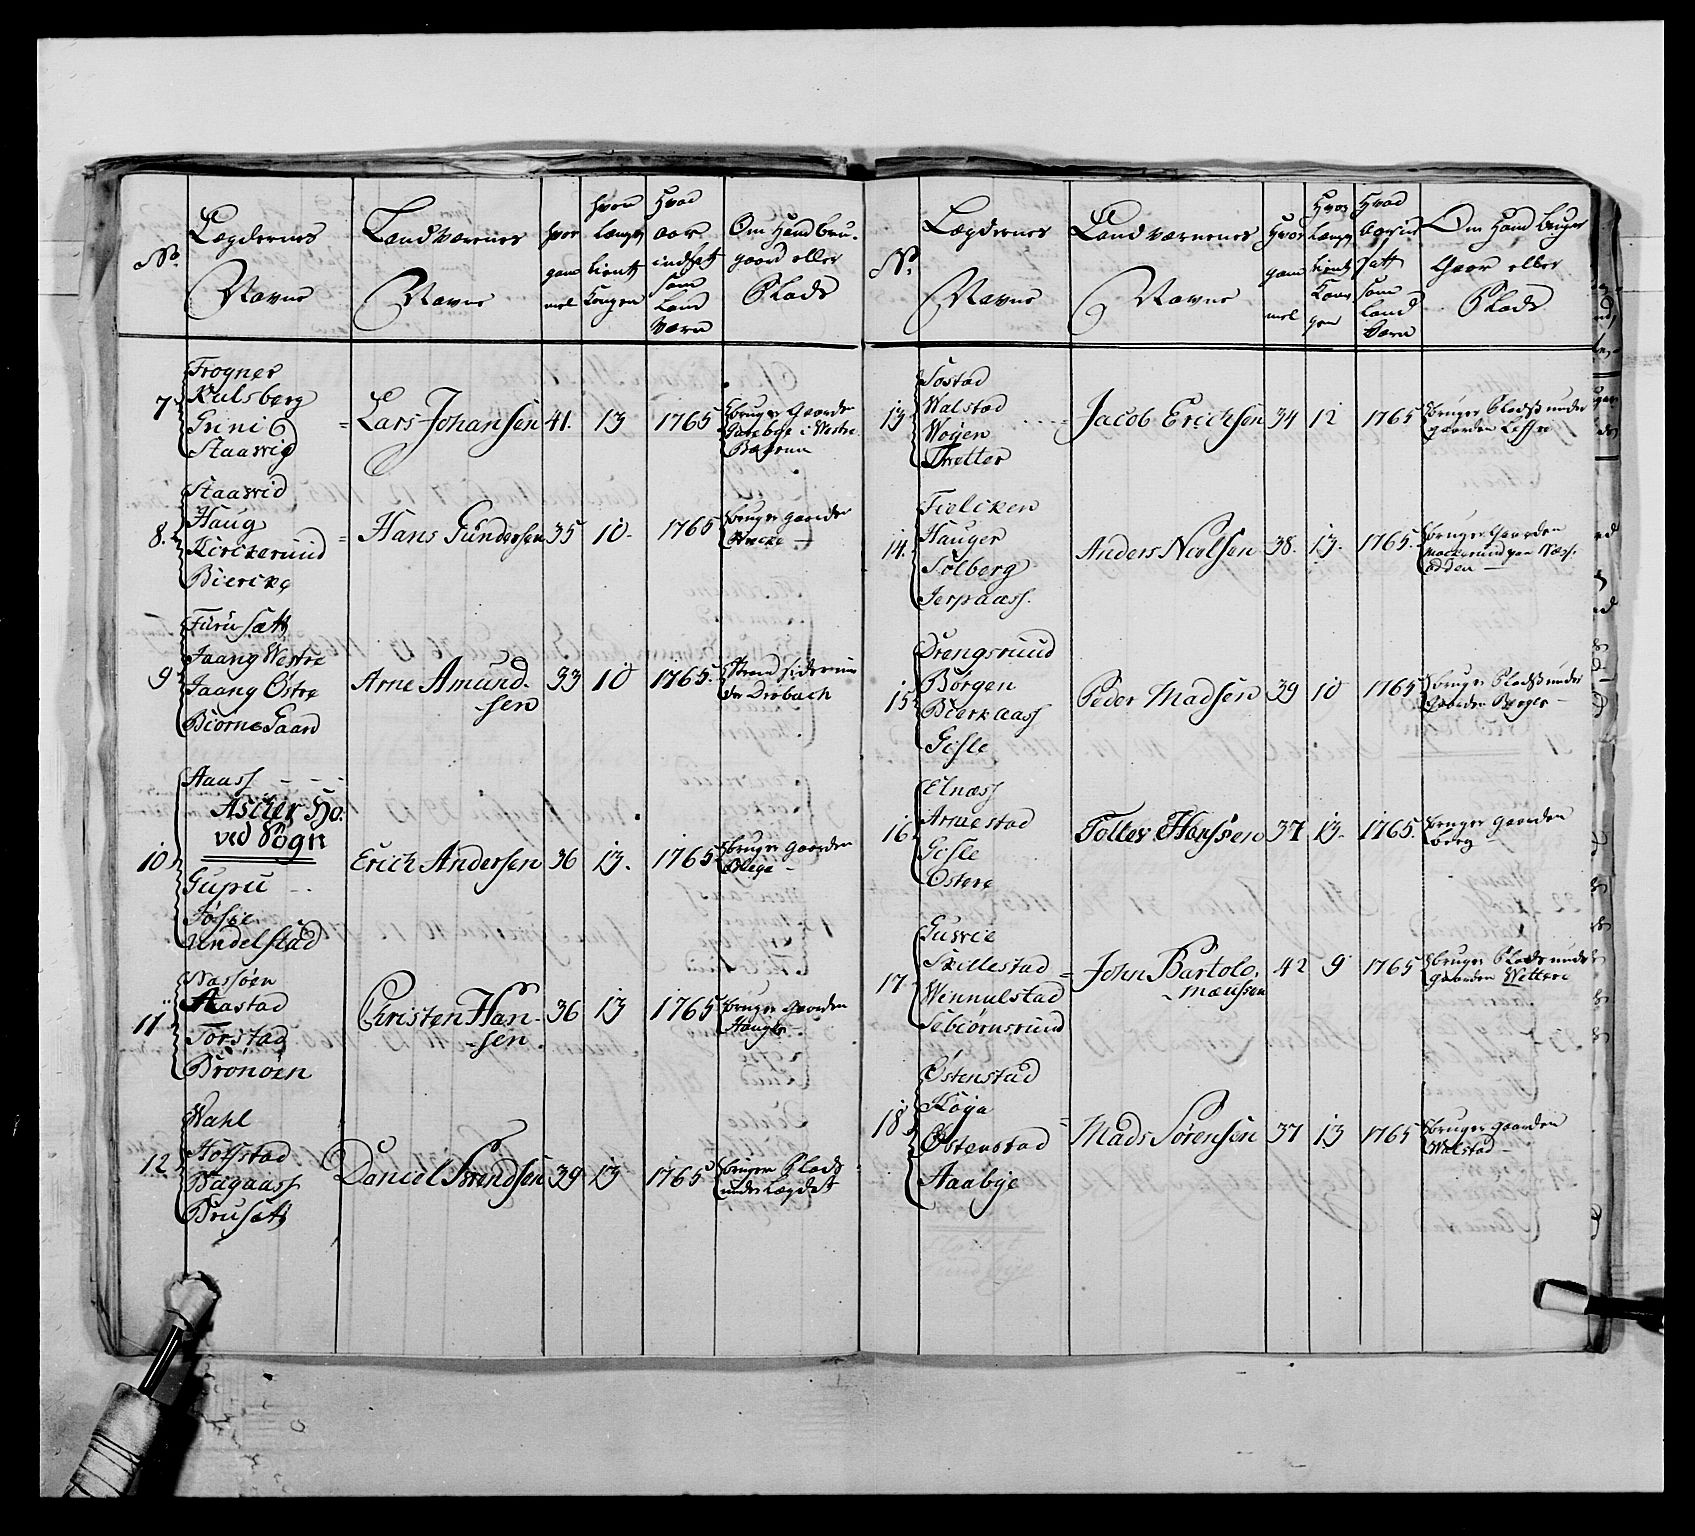 No.
Lægdernes
Navne
Landværnernes
Navne
hvor
gam
mel
hvor
længe
tient
Kongen
Hvad
aar
indsat
som
land
værn
Om Hand bru-
gaard eller
Plads
7
Frogner
Kulsberg
Grini
Staavig
Lars Johansen
41.
13
1765
bruger Gaarden
i Westre
Bærum
8.
Staavid
Haug
Kirkerud
Biercke
Hans Gundersen
35
10.
1765
bruger gaarden
9
Furusætt
Jaang Westre
Jaang Østre
BiørneGaard
Arne Amund-
sen
33
10
1765.
Dr&#248;bach
10
Aass
Ascher Ho-
ved Sogn
Gupu
Undelstad
Erich Andersen
36
13.
1765
bruger Gaarden
11
Nassøen
Aastad
Torstad
Brønøen
Christen Han-
sen.
36
13
1765
bruger gaarden
12
Wahl
Hofstad
Bagaass
Brusætt
Daniel Svendsen
39
13
1765
bruger Plads
under Lægdet
No.
Lægdernes
Navne
Landværnernes
Navne
Hvor
gam
mel
Hvor
længe
tient
Kon
gen
Hvad
aar ind
satt
som
land
værn
Om Hand bruger
Gaar eller
Plads
13
Sostad
Walstad
Woyen
Twetter
Jacob Erichsen
34
12
1765
bruger Plads under
gaarden
14.
Fielcken
Hauger
Solberg
Jerpaass.
Anders Nielsen
38.
13.
1765.
bruger Gaarden
paa Næss-
odden
15
Drengsrud
Borgen
Bierkaass
Gisle
Peder Madsen
39
10
1765
bruger Plads under
Berger
16
Elnæss
Arnestad
Gisle
Østere
Tollev Hanssen
37
13.
1765.
bruger gaarden
Berg
17
Gusvie
Skillestad
Wennulstad
Sebiørnsrud
John Bartolo-
mæussen
42
9
1765
bruger Plads under
gaarden Wettere
18
Østenstad
Køya
Østenstad
Aabye
Mads Sørensen
37
13
1765
bruger gaarden
Walstad